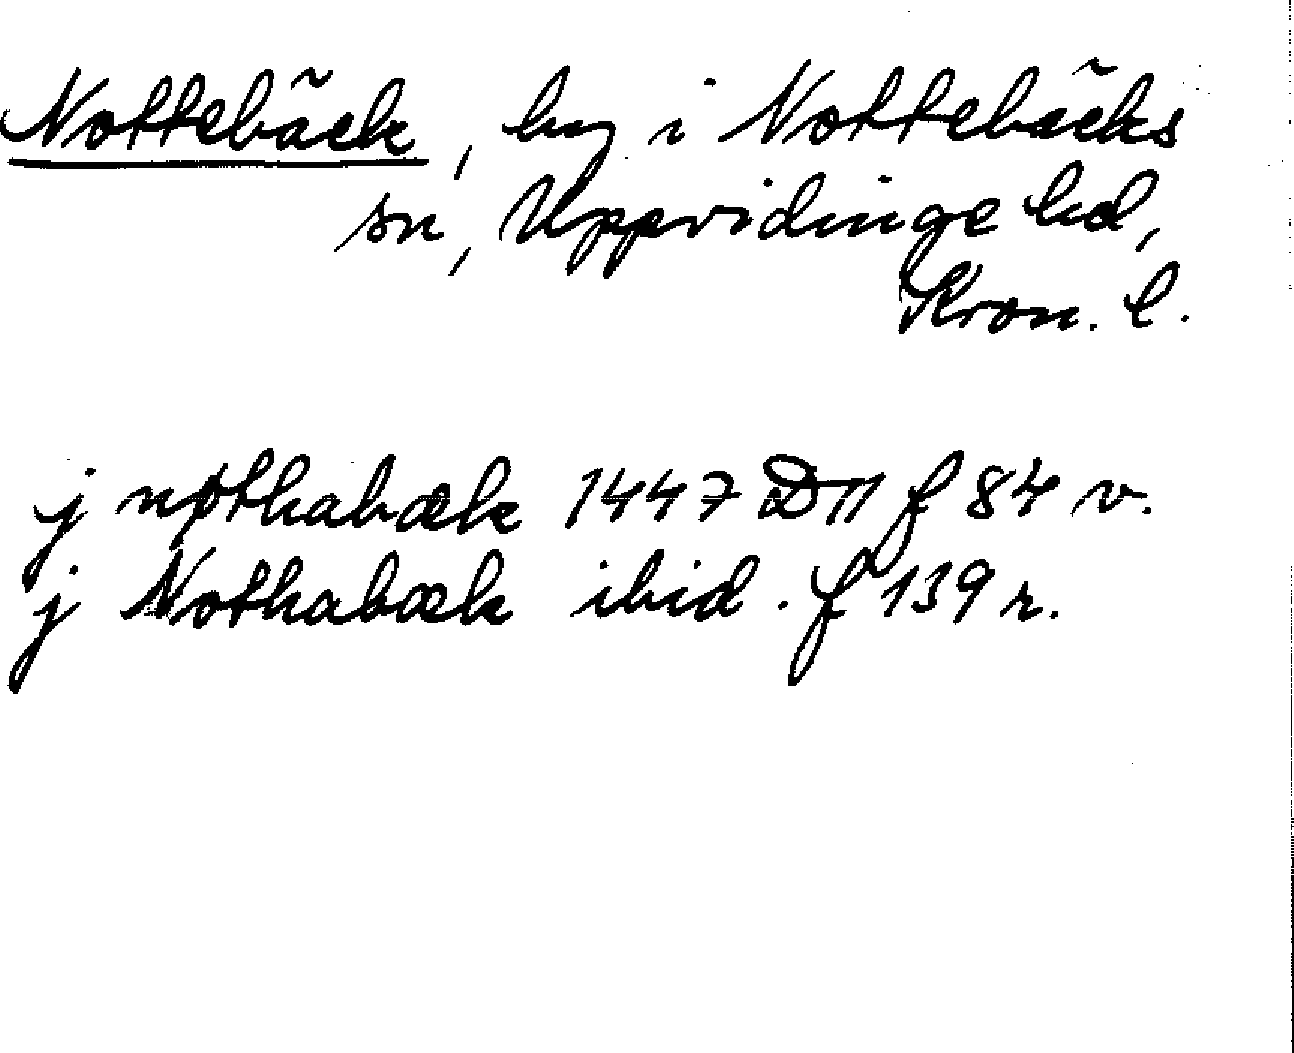 Nottebäck, by i Nottebäcks
sn, Uppvidinge hd,
Kron. l.
j nøthabæk 1447 D11 f 84 v.
j Nothabæk ibid. f 139 r.